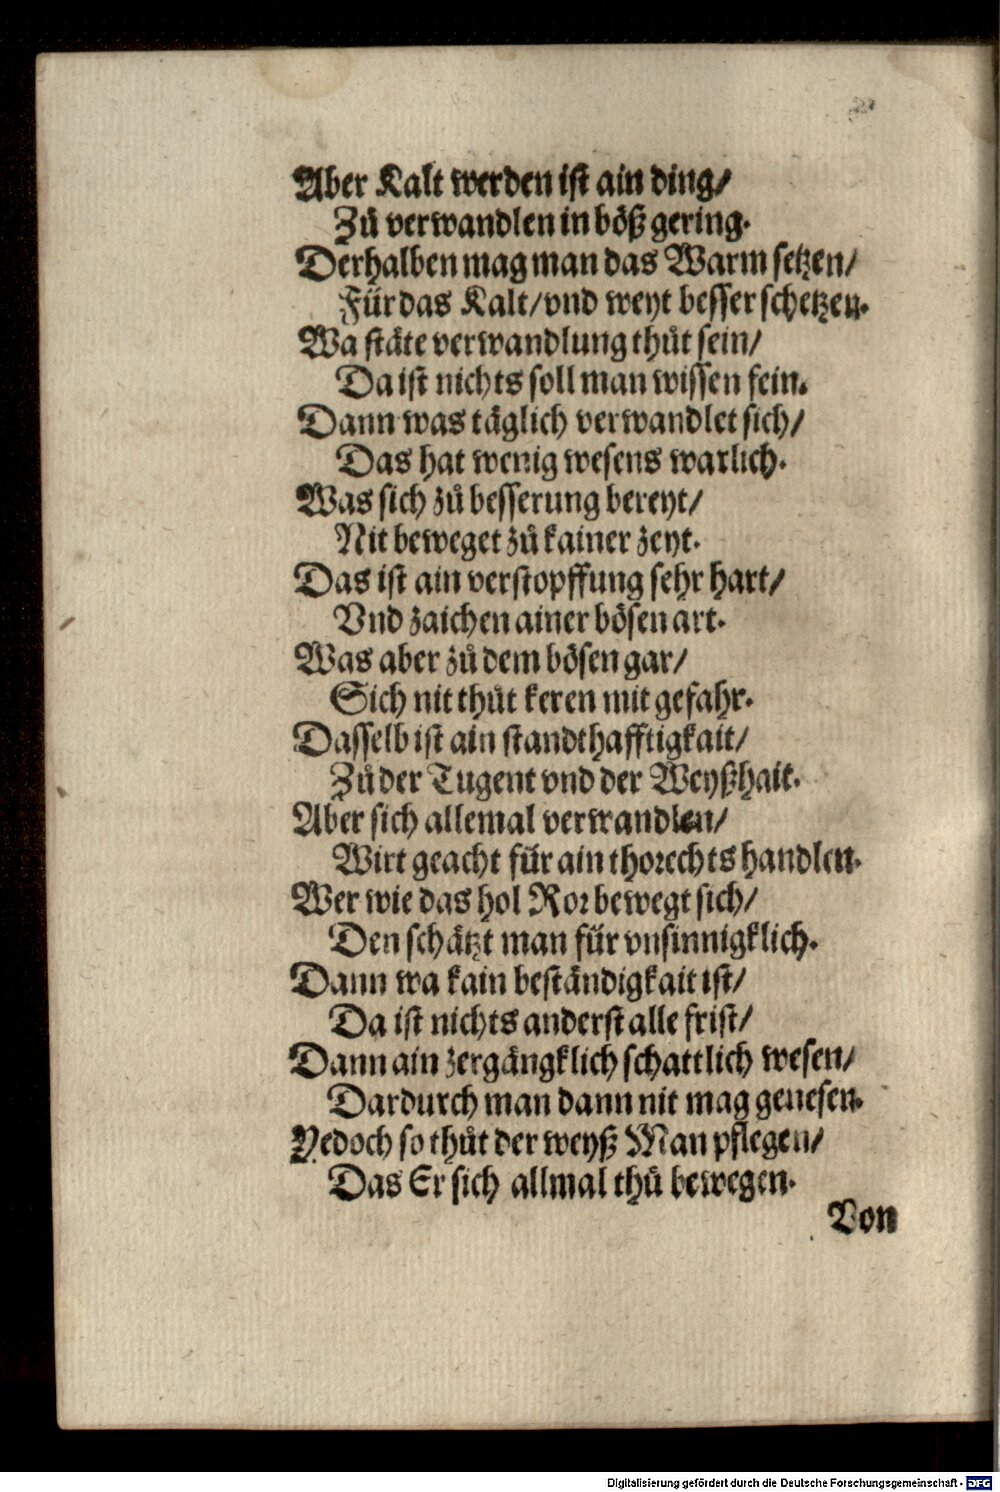 Aber Kalt werden ist ain ding/
Zů verwandlen in böß gering.
Derhalben mag man das Warm setzen/
Für das Kalt/vnd weyt besser schetzen.
Wa stäte verwandlung thůt sein/
Da ist nichts soll man wissen fein.
Dann was täglich verwandlet sich/
Das hat wenig wesens warlich.
Was sich zů besserung bereyt/
Nit beweget zů kainer zeyt.
Das ist ain verstopffung sehr hart/
Vnd zaichen ainer bösen art.
Was aber zů dem bösen gar/
Sich nit thůt keren mit gefahr.
Dasselb ist ain standthafftigkait/
Zů der Tugent vnd der Weyßhait.
Aber sich allemal verwandlen/
Wirt geacht für ain thorechts handlen.
Wer wie das hol Ror bewegt sich/
Den schätzt man für vnsinnigklich.
Dann wa kain beständigkait ist/
Da ist nichts anderst alle frist/
Dann ain zergängklich schattlich wesen/
Dardurch man dann nit mag genesen.
Yedoch so thůt der weyß Man pflegen/
Das Er sich allmal thů bewegen.
Von
Digitalisierung gefördert durch die Deutsche Forschungsgemeinschaft - DFG